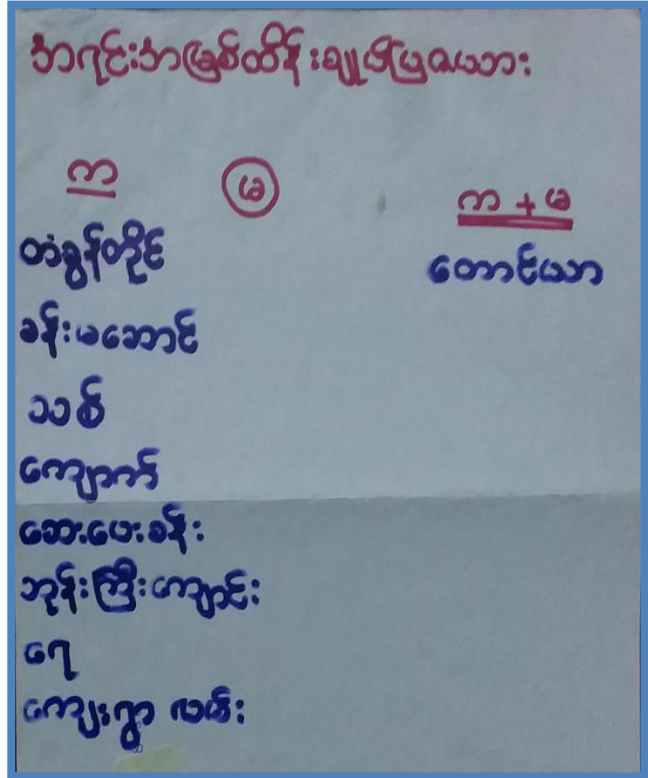 အရင်းအမြစ်ထိန်းချုပ်ပြဇယား
က မ က + မ
တံခွန်တိုင် တောင်ယာ
ခန်းမဆောင်
သစ်
ကျောက်
ဆေးပေးခန်း
ဘုန်းကြီးကျောင်း
ရေ
ကျေးရွာ လမ်း